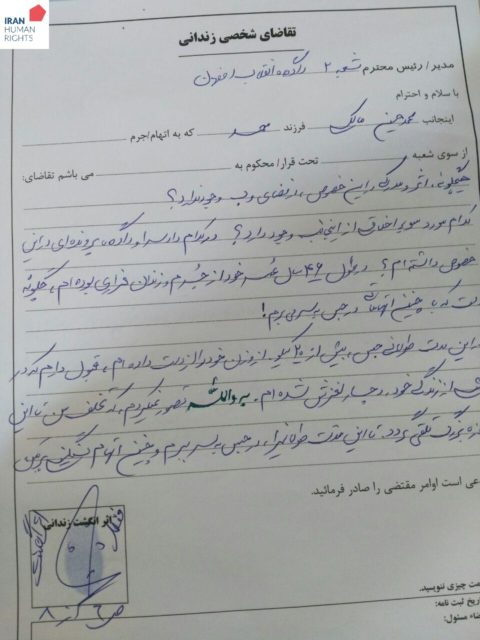 IRAN
HUMAN
RIGHTS
تقاضای شخصی زندانی
مدیر/ رئیس محترم شعبه ۲ دادگاه انقلاب اصفهان
با سلام و احترام
اینجانب محمدحسین مالک فرزند محمد که به اتهام/جرم
از سوی شعبه تحت قرار/ محکوم به می باشم تقاضای:
هیچگونه اثر و مدرکی در این خصوص، در فضای وب وجود ندارد؟
کدام مورد سوء اخلاقی از اینجانب وجود دارد؟ در کدام دادسرا و دادگاه پرونده‌ای در این
خصوص داشته‌ام؟ در طول ۴۶ سال عمر خود از جرم و زندان فراری بوده‌ام، چگونه
است که با چنین اتهاماتی در حبس بسر می‌برم!
در این مدت طولانی حبس، بیش از ۲۵ کیلو از وزن خود را از دست داده‌ام، قبول دارم که در
از زندگی خود، دچار لغزش شده‌ام. به والله تصور نمیکردم، که تخلف من تا این
اندازه بزرگ تلقی گردد. تا این مدت طولانی را، در حبس بسر ببرم و چنین اتهام سنگینی بر من
عی است اوامر مقتضی را صادر فرمائید.
اثر انگشت زندانی
مت چیزی ننویسید.
اریخ ثبت نامه:
ضاء مسئول: